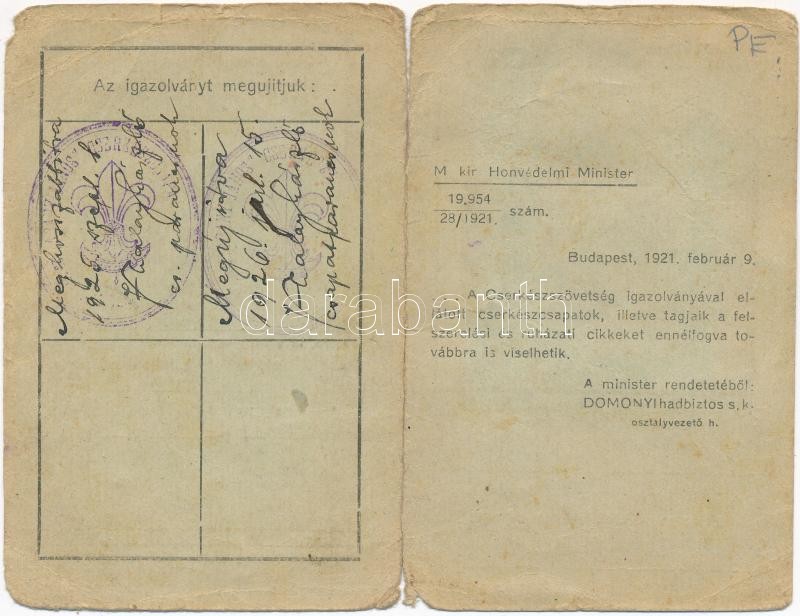 Az igazolványt megujitjuk:
Meghosszabbítva
1925. szept. 1.
cs. parancsnok
Megujitva
1926. jul. 15.
csapatparancsnok
PE
M kir Honvédelmi Minister
19,954
28/1921. szám.
Budapest, 1921. február 9.
A Cserkészszövetség igazolványával el-
látott cserkészcsapatok, illetve tagjaik a fel-
szerelési és ruházati cikkeket ennélfogva to-
vábbra is viselhetik.
A minister rendetetéből:
DOMONYI hadbiztos s, k.
osztalyvezető h.
darabanth